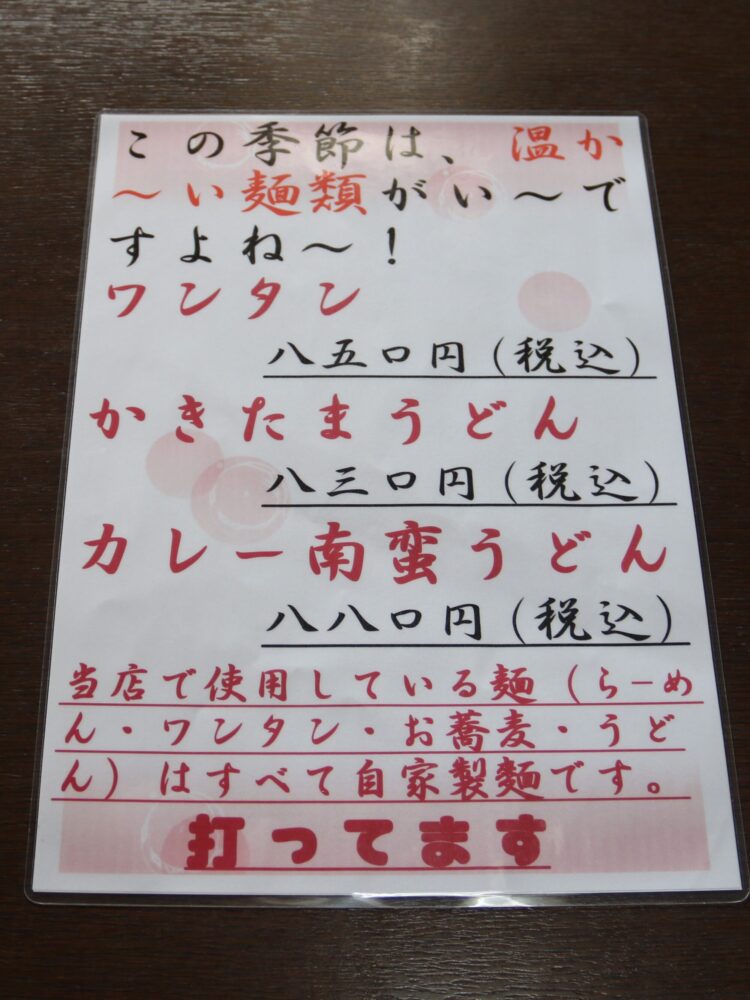 この季節は、温か
～い麺類がい～で
すよね～！
ワンタン
八五〇円（税込）
かきたまうどん
八三〇円（税込）
カレー南蛮うどん
八八〇円（税込）
当店で使用している麺（らーめ
ん・ワンタン・お蕎麦・うど
ん）はすべて自家製麺です。
打ってます